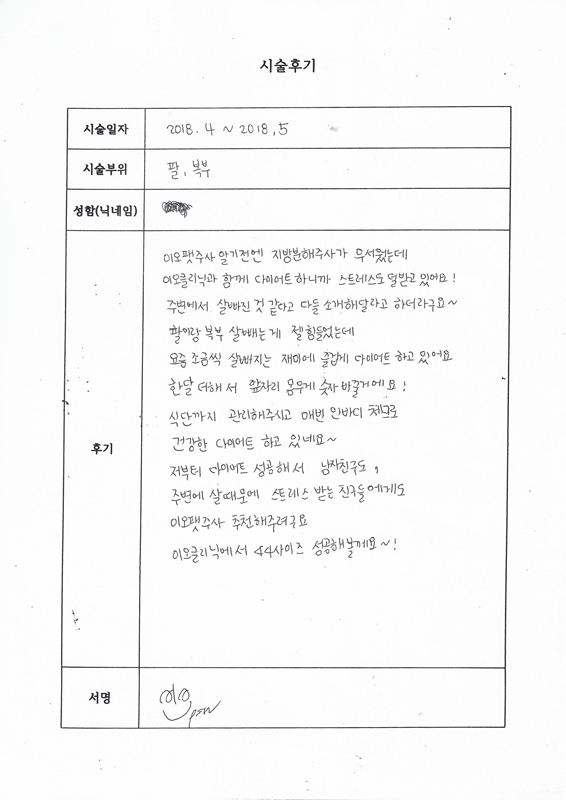 시술후기
시술일자 2018. 4 ~ 2018, 5
시술부위 팔, 복부
성함(닉네임)
후기
이오팻주사 알기전엔 지방분해주사가 무서웠는데
이오클리닉과 함께 다이어트 하니까 스트레스도 덜받고 있어요!
주변에서 살빠진 것 같다고 다들 소개해달라고 하더라구요~
팔이랑 복부 살빼는게 젤 힘들었는데
요즘 조금씩 살빠지는 재미에 즐겁게 다이어트 하고 있어요
한달 더해서 앞자리 몸무게 숫자 바꿀거에요!
식단까지 관리해주시고 매번 인바디 체크로
건강한 다이어트 하고 있네요~
저부터 다이어트 성공해서 남자친구도,
주변에 살때문에 스트레스 받는 친구들에게도
이오팻주사 추천해주려구요
이오클리닉에서 44사이즈 성공해볼께요~!
서명